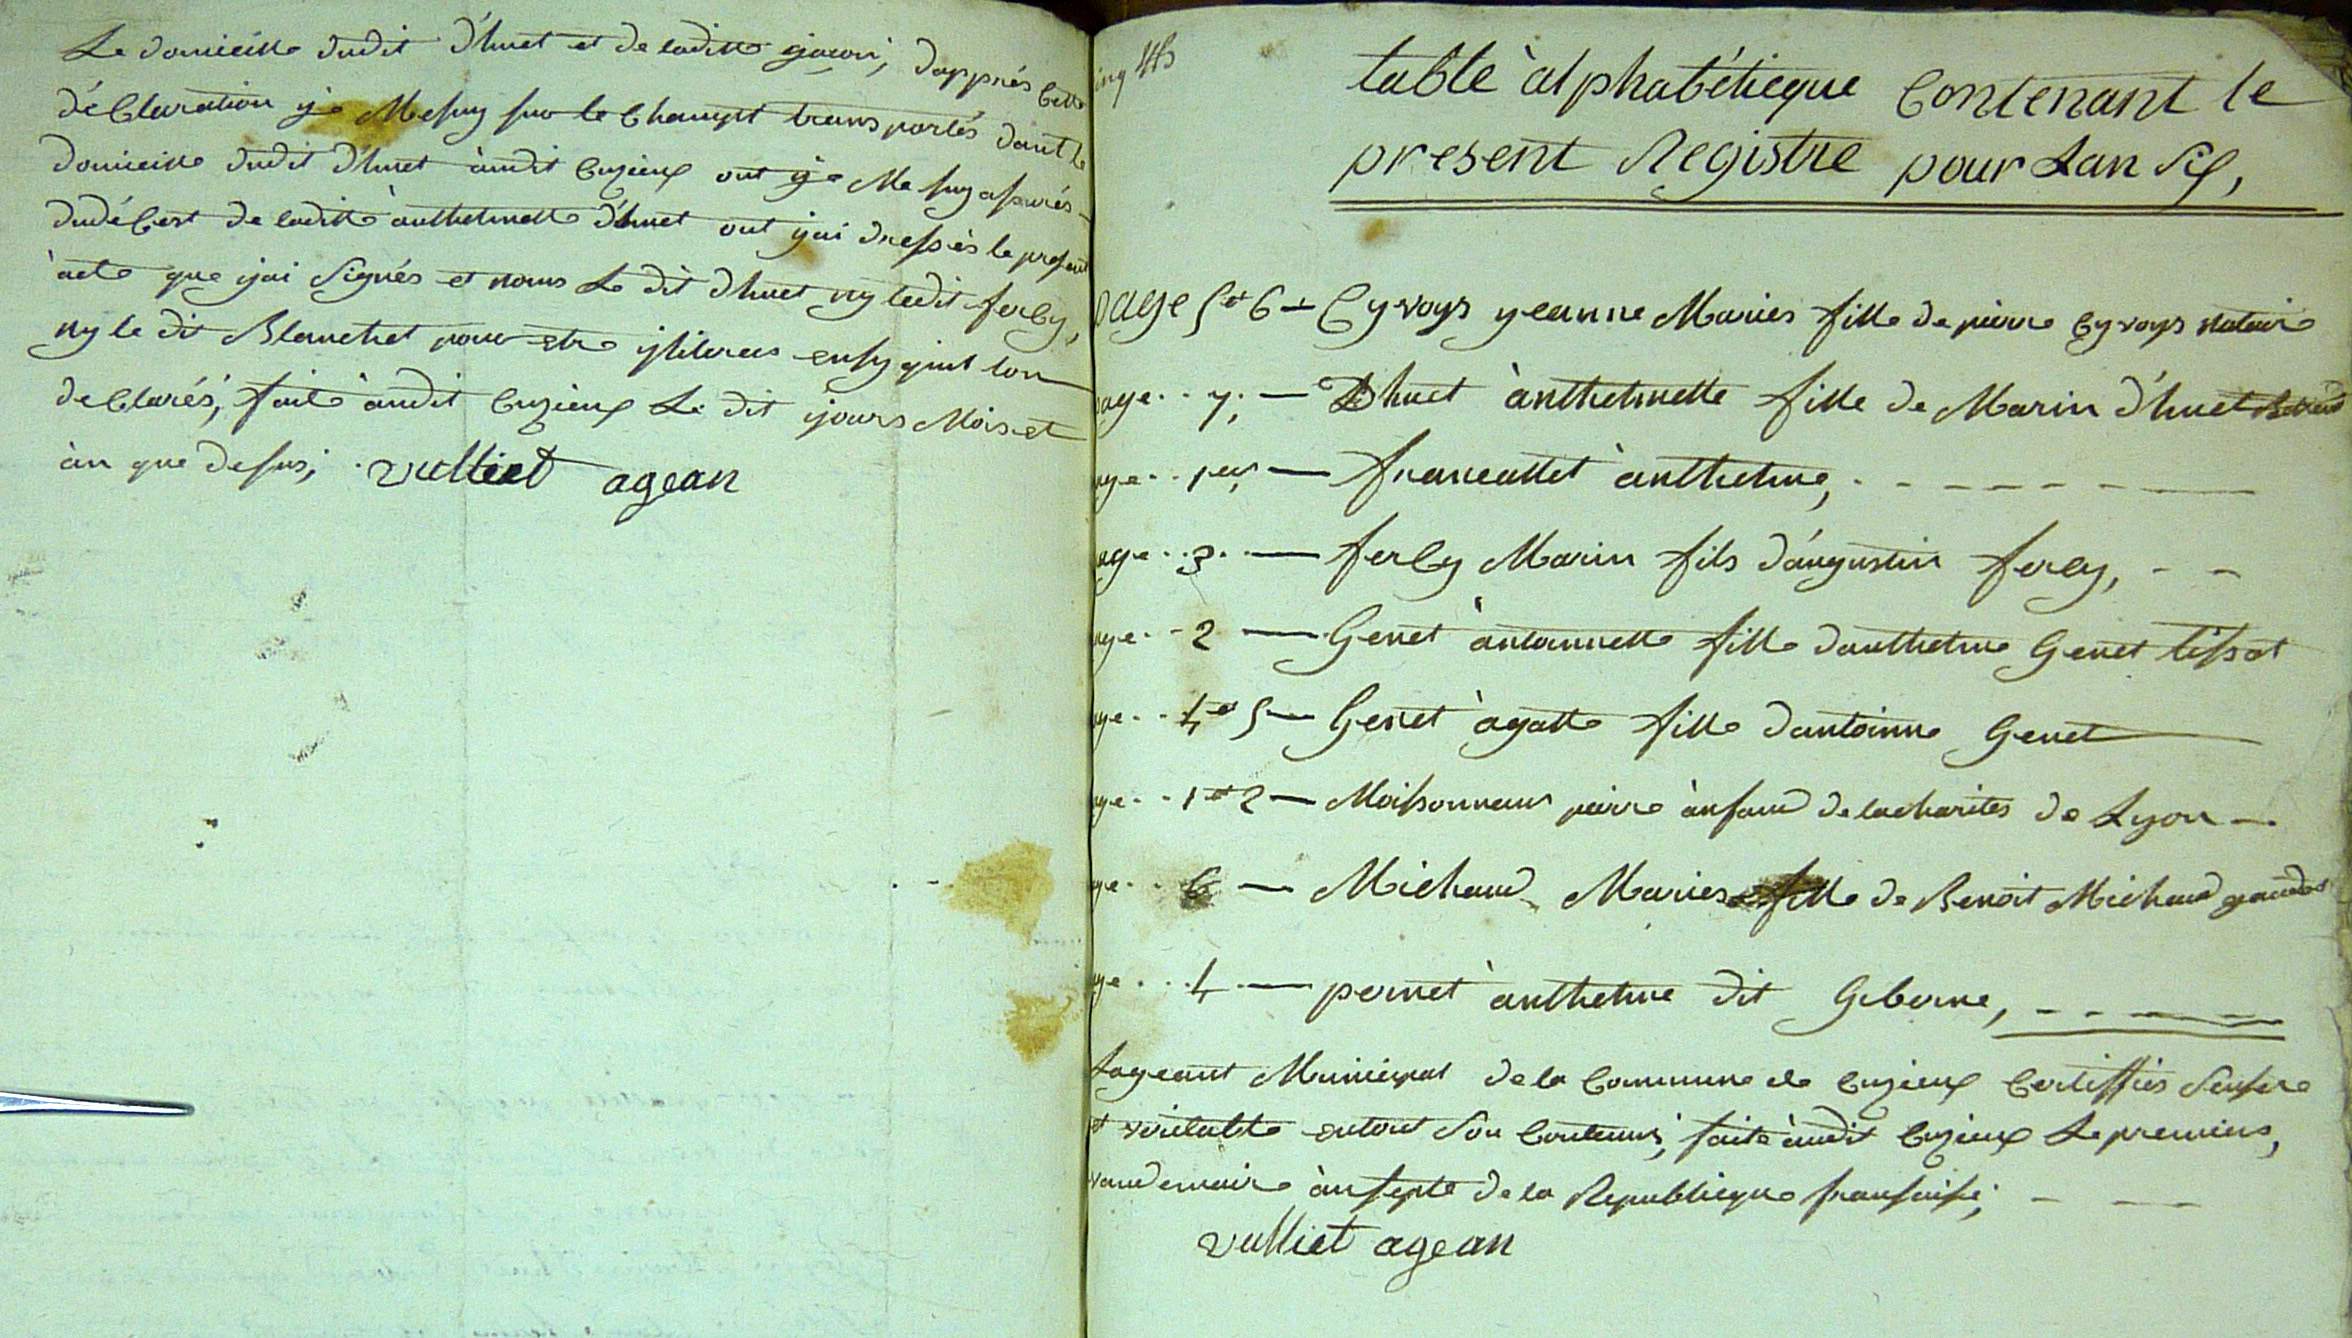 Le domicille dudit d'huet et de laditte gjacon, dapprés Cette
déClaration je Me suy sur le Champt trans portés dant le
domicille dudit D'huet àudit Cuzieux out je Me suy assurés
dudéCest de laditte àntthelmette d'huet out jai dressès le present
àcte que jai Signés et noms Le dit dhuet ny ledit ferly,
ny le dit Blanchet pour etre
declarés, faite àudit Cuzieux Le dit jours Mois et
àn que dessus, vulliet agean
table àlphabétieque Contenant le
present Registre pour Lan Six,
page 5 et 6 — Cyvoys yeanne Maries fille de pierre Cyvoys notaire
page .. 7, — Dhuet àntthelmette fille de Marin d'huet
age .. — francallet àntthelme,
age .. 3. — ferly Marin fils d'augustin ferly,
age .. 2 — Genet àntoinnette fille dantthelme Genet tissot
age .. 4 et 5 — Genet àgatte fille dantoinne Genet
age .. 1 et 2 — Moissonneur pierre ànfand de lacharites de Lyon
ge .. 6 — Michaud Maries fille de Benoit Michaud
ge ... 4 — pernet àntthelme dit Giberne,
Lageant Municipal de la Commune de Cuzieux Certiffiès Sensere
et véritable entout Son Contenus, faite àudit Cuzieux Le premiers,
vandemaire àn septe de la Republieque fransaise,
vulliet agean